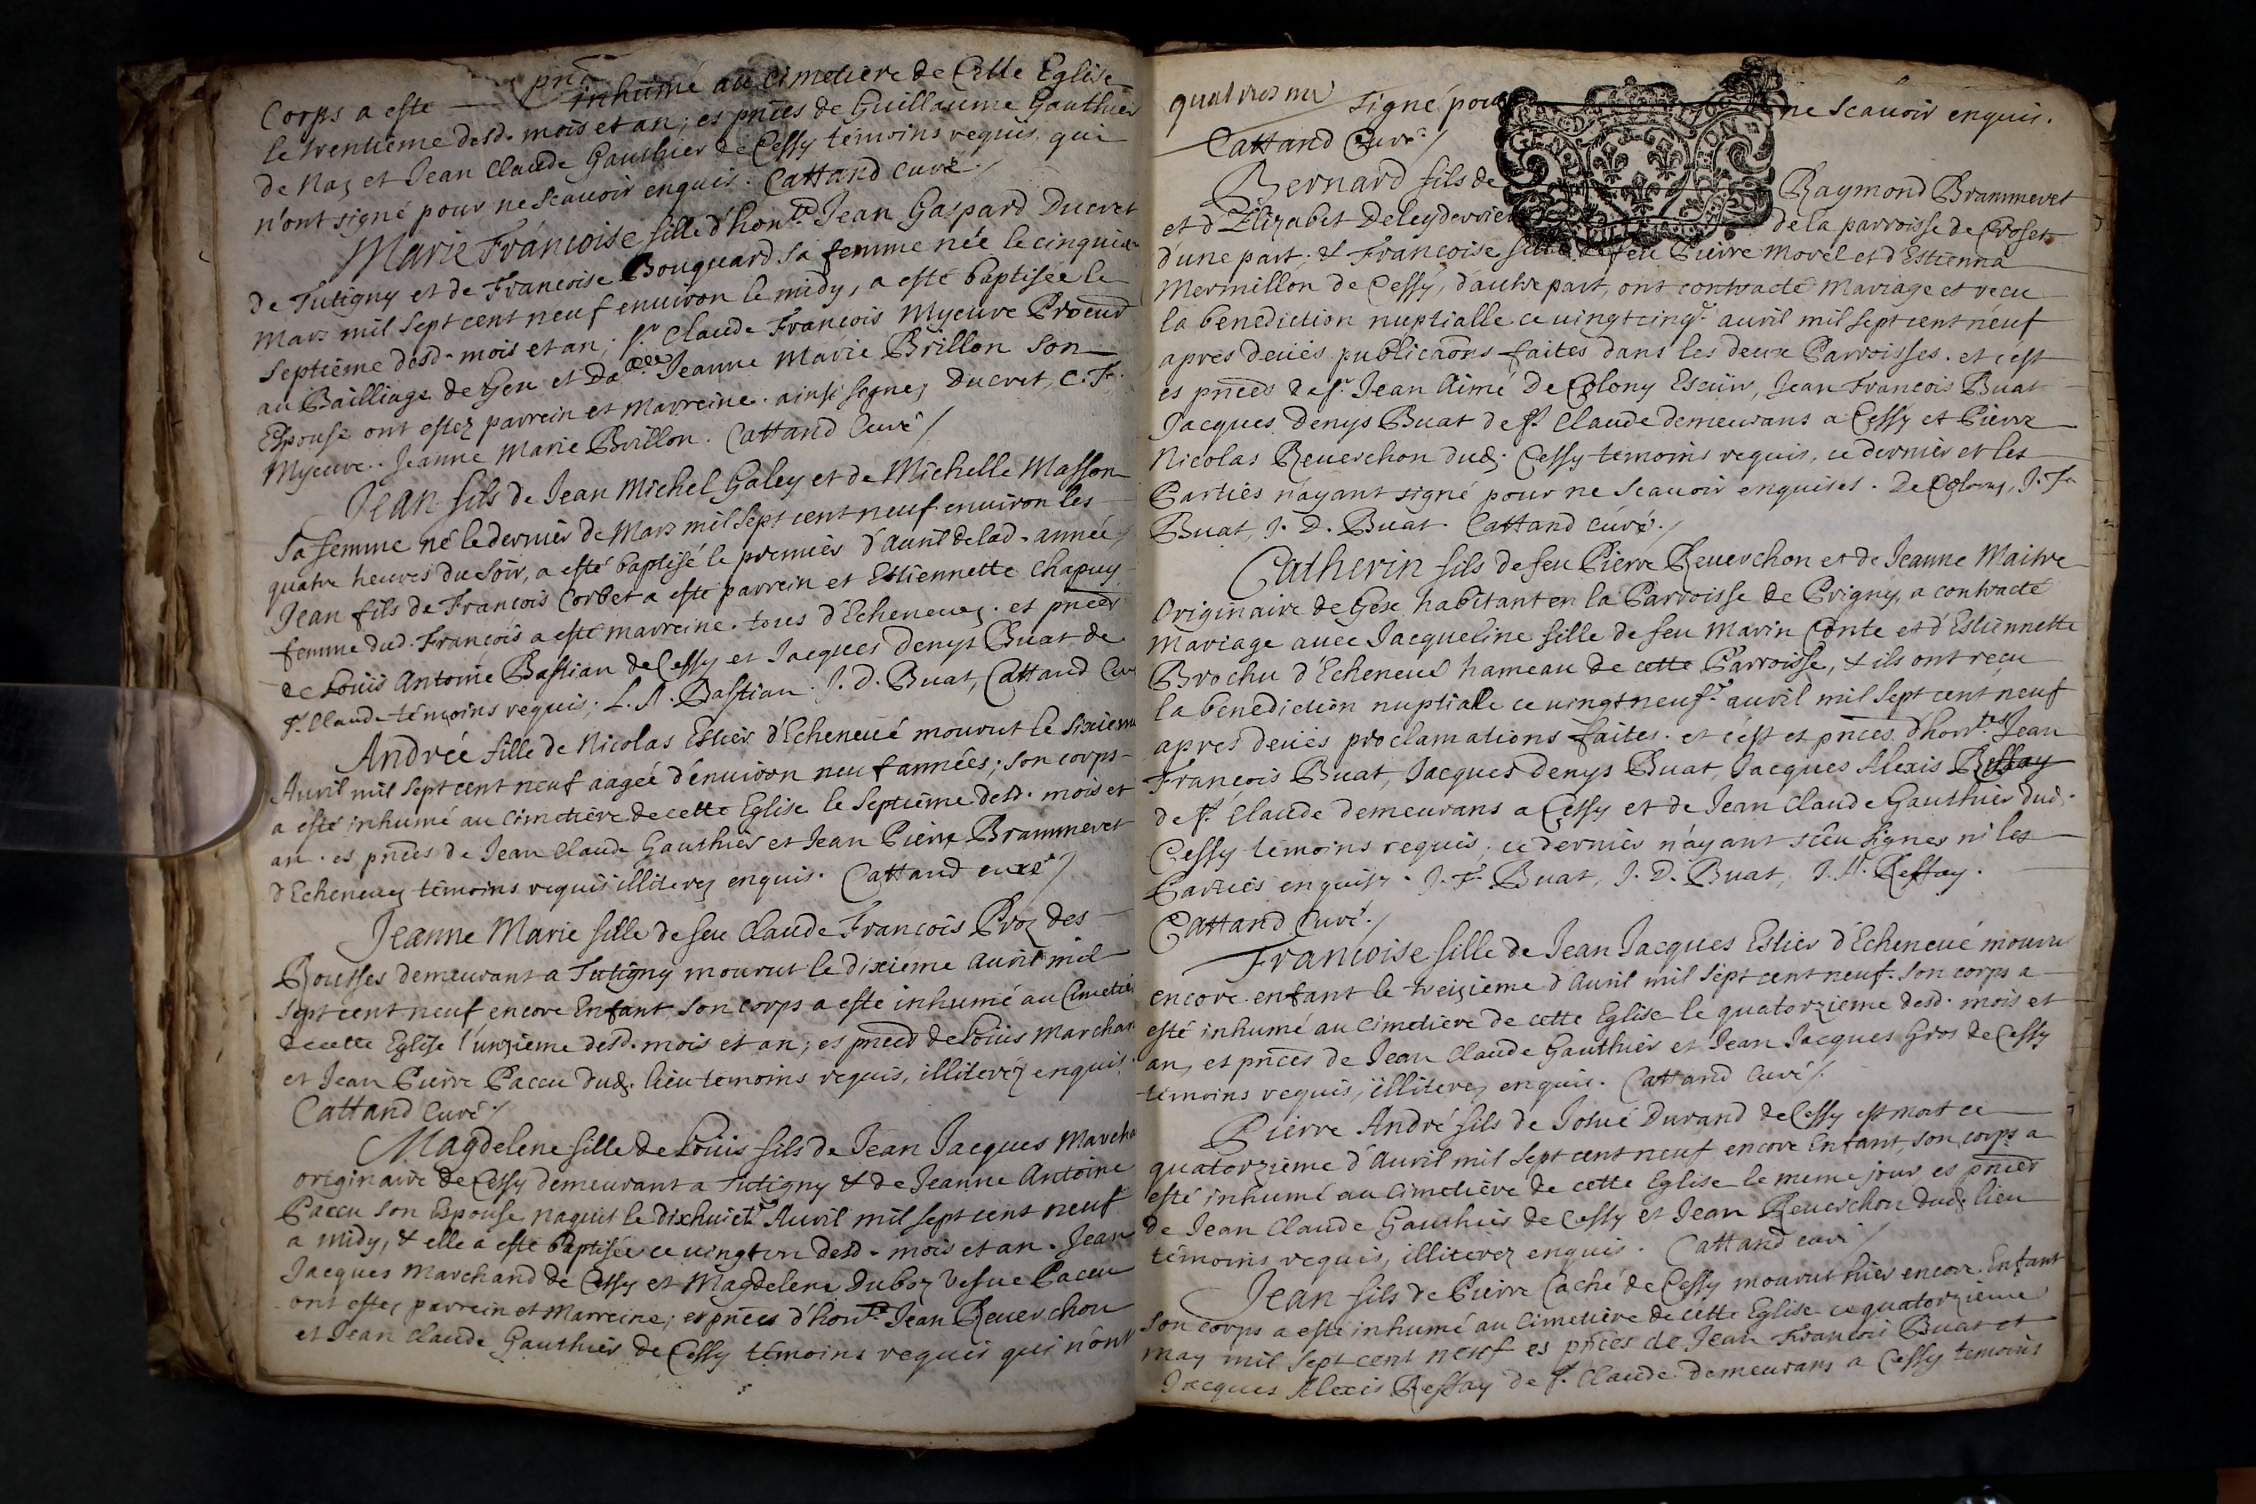 Corps a este inhumé au Cimetiere de Cette Eglise
le trentieme desd. mois et an; es pnces de Guillaume Gauthier
de Naz et Jean Claude Gauthier de Cessy témoins requis qui
n'ont signé pour ne scavoir enquis. Cattand curé
Marie Francoise fille d'hon.ble Jean Gaspard Ducret
de Tutigny et de Francoise Bouquard sa femme née le cinquie
Mars mil sept cent neuf enuiron le midy, a esté baptisée le
septiéme desd. mois et an; Sr. Claude Francois Myeuvre
au Bailliage de Gex et Jeanne Marie Brillon son
Espouse ont estez parrein et Marreine. ainsi signez Ducret, C. F.
Myeuvre. Jeanne Marie Brillon. Cattand Curé
Jean fils de Jean Michel Galey et de Michelle Masson
sa femme né le dernier de Mars mil sept cent neuf enuiron les
quatre heures du soir, a esté baptisé le premier d'Auril de lad. année
Jean fils de Francois Corbet a esté parrein et Estiennette Chapuy
femme dud. Francois a esté marreine. tous d'Echeneuez. et pnces
de Loüis Antoine Bastian de Cessy et Jacques Denys Buat de
St. Claude témoins requis; L. A. Bastian. J. D. Buat, Cattand Cur
Andrée fille de Nicolas Estier d'Echeneué mourut le sixieme
Auril mil sept cent neuf aagée d'enuiron neuf années; son corps
a esté inhumé au Cimetiére de cette Eglise le septiéme desd. mois et
an. es pnces de Jean Claude Gauthier et Jean Pierre Brammeret
d'Echeneuez témoins requis illiterez enquis. Cattand curé
Jeanne Marie fille de feu Claude Francois Proz des
Rousses demeurant a Tutigny mourut le dixieme Auril mil
sept cent neuf encore Enfant son corps a esté inhumé au Cimetié
de cette Eglise l'unzieme desd. mois et an; es pnces de Loüis Marchan
et Jean Pierre Paccu dud. lieu temoins requis, illiteréz enquis.
Cattand Curé
Magdelene fille de Loüis fils de Jean Jacques Marcha
originaire de Cessy demeurant a Tutigny & de Jeanne Antoine
Paccu son Espouse naquit le dixhuict.e Auril mil sept cent neuf
a midy, & elle a esté baptisée ce vingt un desd. mois et an. Jean
Jacques Marchand de Cessy et Magdelene Duboz vefue Paccu
ont estez parrein et Marreine; es pnces d'hon.ble Jean Reuerchon
et Jean Claude Gauthier de Cessy témoins requis qui n'ont
signé pour ne scavoir enquis.
Cattand Curé
Bernard fils de Raymond Brammeret
et d'Elizabet de la parroisse de Croset
d'une part; & Francoise fille de feu Pierre Morel et d'Estienna
Mermillon de Cessy, d'autre part, ont contracté Mariage et recu
la benediction nuptialle ce uingtcinq.e auril mil sept cent neuf
apres deües publicaôns faites dans les deux Parroisses. et c'est
es pnces de Sr. Jean Aimé de Colony Escüir, Jean Francois Buat
Jacques Denys Buat de St. Claude demeurans a Cessy et Pierre
Nicolas Reuerchon dud. Cessy temoins requis, ce dernier et les
Parties n'ayant signé pour ne scauoir enquises. De Colony, J. F.
Buat, J. D. Buat. Cattand Curé.
Catherin fils de feu Pierre Reuerchon et de Jeanne Maitre
Originaire de Gex habitant en la Parroisse de Prigny, a contracté
Mariage auec Jacqueline fille de feu Marin Conte et d'Estiennette
Brochu d'Echeneué hameau de cette Parroisse, & ils ont reçu
la bénediction nuptialle ce uingtneuf.e auril mil sept cent neuf
apres deües proclamations faites. et c'est es pnces d'hon.bles Jean
Francois Buat, Jacques Denys Buat, Jacques Alexis Reffay
de St. Claude demeurans a Cessy et de Jean Claude Gauthier dud.
Cessy témoins requis; ce dernier n'ayant sceu signer ni les
Parties enquises. J. F. Buat, J. D. Buat, J. A. Reffay.
Cattand Curé.
Francoise fille de Jean Jacques Estier d'Echeneué mouru
encore enfant le treizieme d'Auril mil sept cent neuf. Son corps a
esté inhumé au Cimetiere de cette Eglise le quatorzieme desd. mois et
an, es pnces de Jean Claude Gauthier et Jean Jacques Gros de Cessy
témoins requis, illiterez enquis. Cattand Curé
Pierre André fils de Josué Durand de Cessy est mort ce
quatorzieme d'Auril mil sept cent neuf encore Enfant, son corps a
esté inhumé au Cimetiére de cette Eglise le meme jour es pnces
de Jean Claude Gauthier de Cessy et Jean Reuerchon dud. lieu
témoins requis, illiterez enquis. Cattand curé
Jean fils de Pierre Caché de Cessy mourut hier encore Enfant
son corps a esté inhumé au Cimetiére de cette Eglise ce quatorzieme
may mil sept cent neuf es pnces de Jean Francois Buat et
Jacques Alexis Reffay de St. Claude demeurans a Cessy temoins